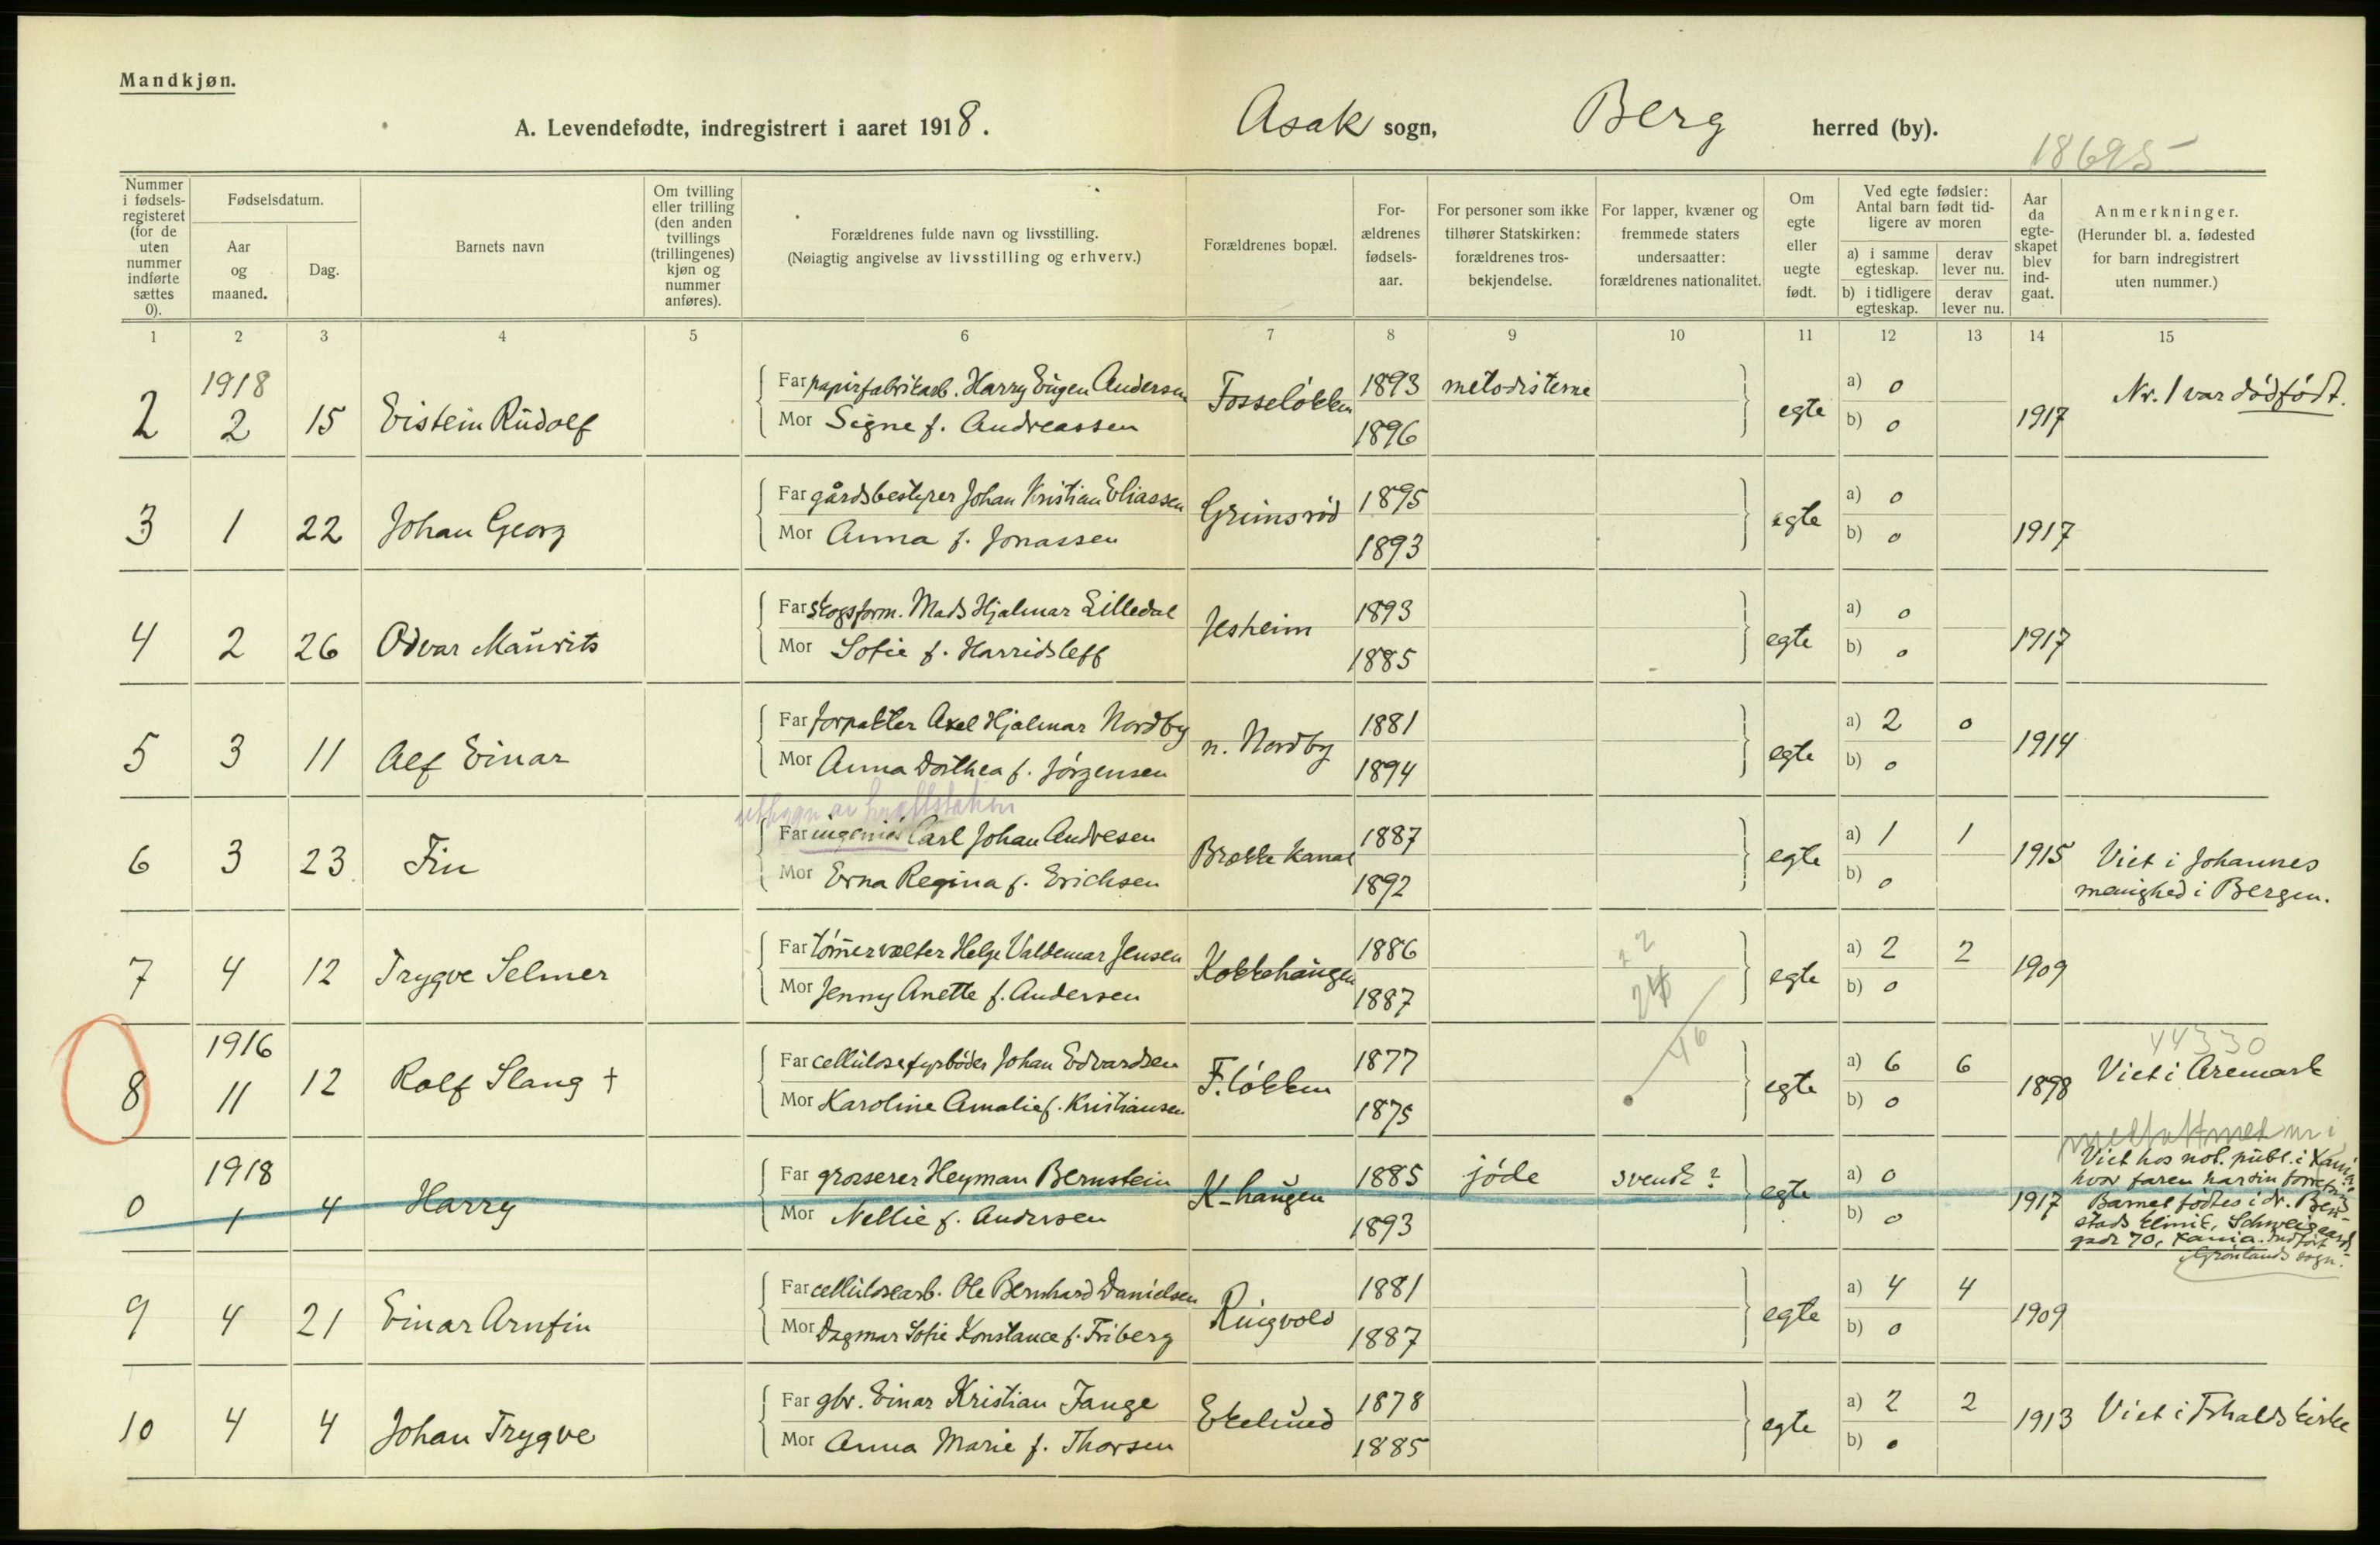 Mandkjøn.
A. Levendefødte, indregistrert i aaret 1918.
Asak sogn, Berg herred (by).
18695
Nummer i fødselsregisteret (for de uten nummer indførte sættes 0).
Fødselsdatum.
Aar og maaned.
Dag.
Barnets navn
Om tvilling eller trilling (den anden tvillings (trillingenes) kjøn og nummer anføres).
Forældrenes fulde navn og livsstilling.
(Nøiagtig angivelse av livsstilling og erhverv.)
Forældrenes bopæl.
Forældrenes fødselsaar.
For personer som ikke tilhører Statskirken: forældrenes trosbekjendelse.
For lapper, kvæner og fremmede staters undersaatter: forældrenes nationalitet.
Om egte eller uegte født.
Ved egte fødsler: Antal barn født tidligere av moren
a) i samme egteskap. derav lever nu.
b) i tidligere egteskap. derav lever nu.
Aar da egteskapet blev indgaat.
Anmerkninger.
(Herunder bl. a. fødested for barn indregistrert uten nummer.)
1 2 3 4 5 6 7 8 9 10 11 12 13 14 15
2 1918 2 15 Eistein Rudolf
Far papirfabrikarb. Harry Eugen Andersen Fosseløkken 1893 metodisterne
Mor Signe f. Andreassen 1896
egte a) 0 b) 0 1917 Nr. 1 var dødfødt.
3 1 22 Johan Georg
Far gårdsbestyrer Johan Kristian Eliassen Grimsrød 1895
Mor Anna f. Jonassen 1893
egte a) 0 b) 0 1917
4 2 26 Odvar Maurits
Far skogsform. Mads Hjalmar Lilledal Jesheim 1893
Mor Sofie f. Harridsleff 1885
egte a) 0 b) 0 1917
5 3 11 Alf Einar
Far forpakter Axel Hjalmar Nordby n. Nordby 1881
Mor Anna Dorthea f. Jørgensen 1894
egte a) 2 0 b) 0 1914
6 3 23 Fin
Far ingeniør Carl Johan Andresen Brække kanal 1887
Mor Erna Regina f. Erichsen 1892
egte a) 1 1 b) 0 1915 Viet i Johannes
menighed i Bergen.
7 4 12 Trygve Selmer
Far tømmervælter Helge Valdemar Jensen Kokkehaugen 1886
Mor Jenny Anette f. Andersen 1887
egte a) 2 2 b) 0 1909
8 1916 11 12 Rolf Slang †
Far cellulosefyrbøder Johan Edvardsen F.løkken 1877
Mor Karoline Amalie f. Kristiansen 1875
egte a) 6 6 b) 0 1898 44330
Viet i Aremark
0 1918 1 4 Harry
Far grosserer Heyman Bernstein K-haugen 1885 jøde svensk?
Mor Nellie f. Andersen 1893
egte a) 0 b) 0 1917
Viet hos not. publ. i Kania
hvor faren har sin forretn.
Barnet fødtes i dr.
stads klinik, Schweigaards
gade 70, Kania. Indført
Grønlands sogn.
9 4 21 Einar Arnfin
Far cellulosearb. Ole Bernhard Danielsen Ringvold 1881
Mor Dagmar Sofie Konstance f. Friberg 1887
egte a) 4 4 b) 0 1909
10 4 4 Johan Trygve
Far gbr. Einar Kristian Fange Ekelund 1878
Mor Anna Marie f. Thorsen 1885
egte a) 2 2 b) 0 1913 Viet i Frhalds kirke